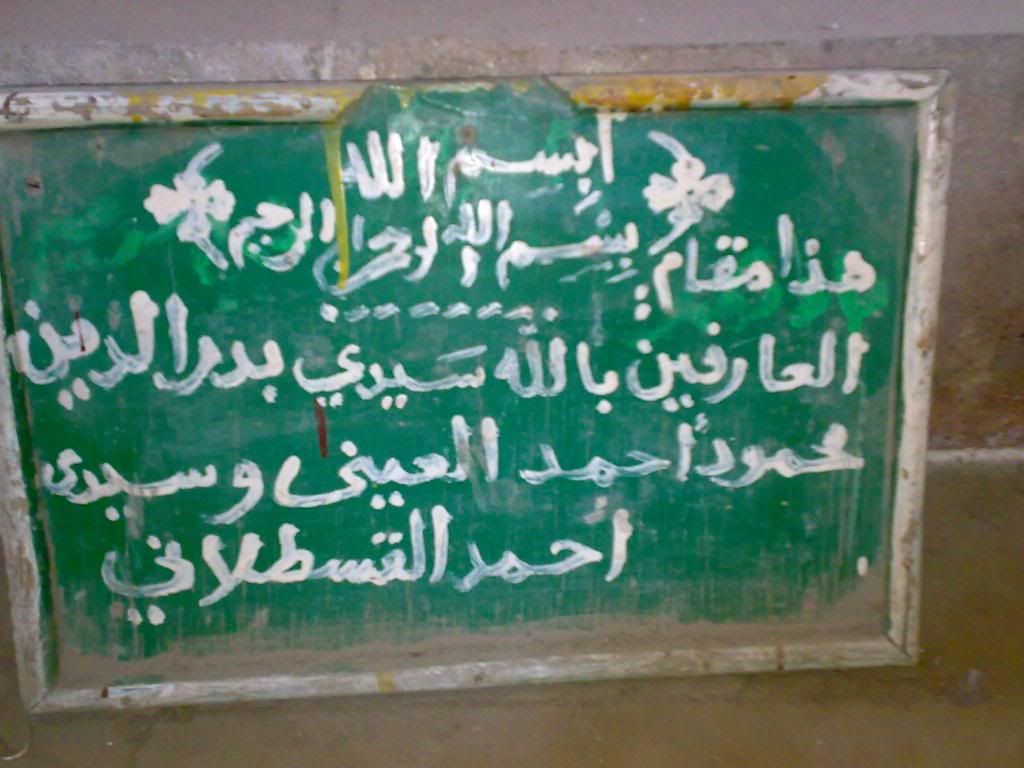 بسم الله
بسم الله الرحمن الرحيم
هذا مقام
العارفين بالله سيدي بدر الدين
محمود أحمد العينى وسيدى
احمد القسطلاني